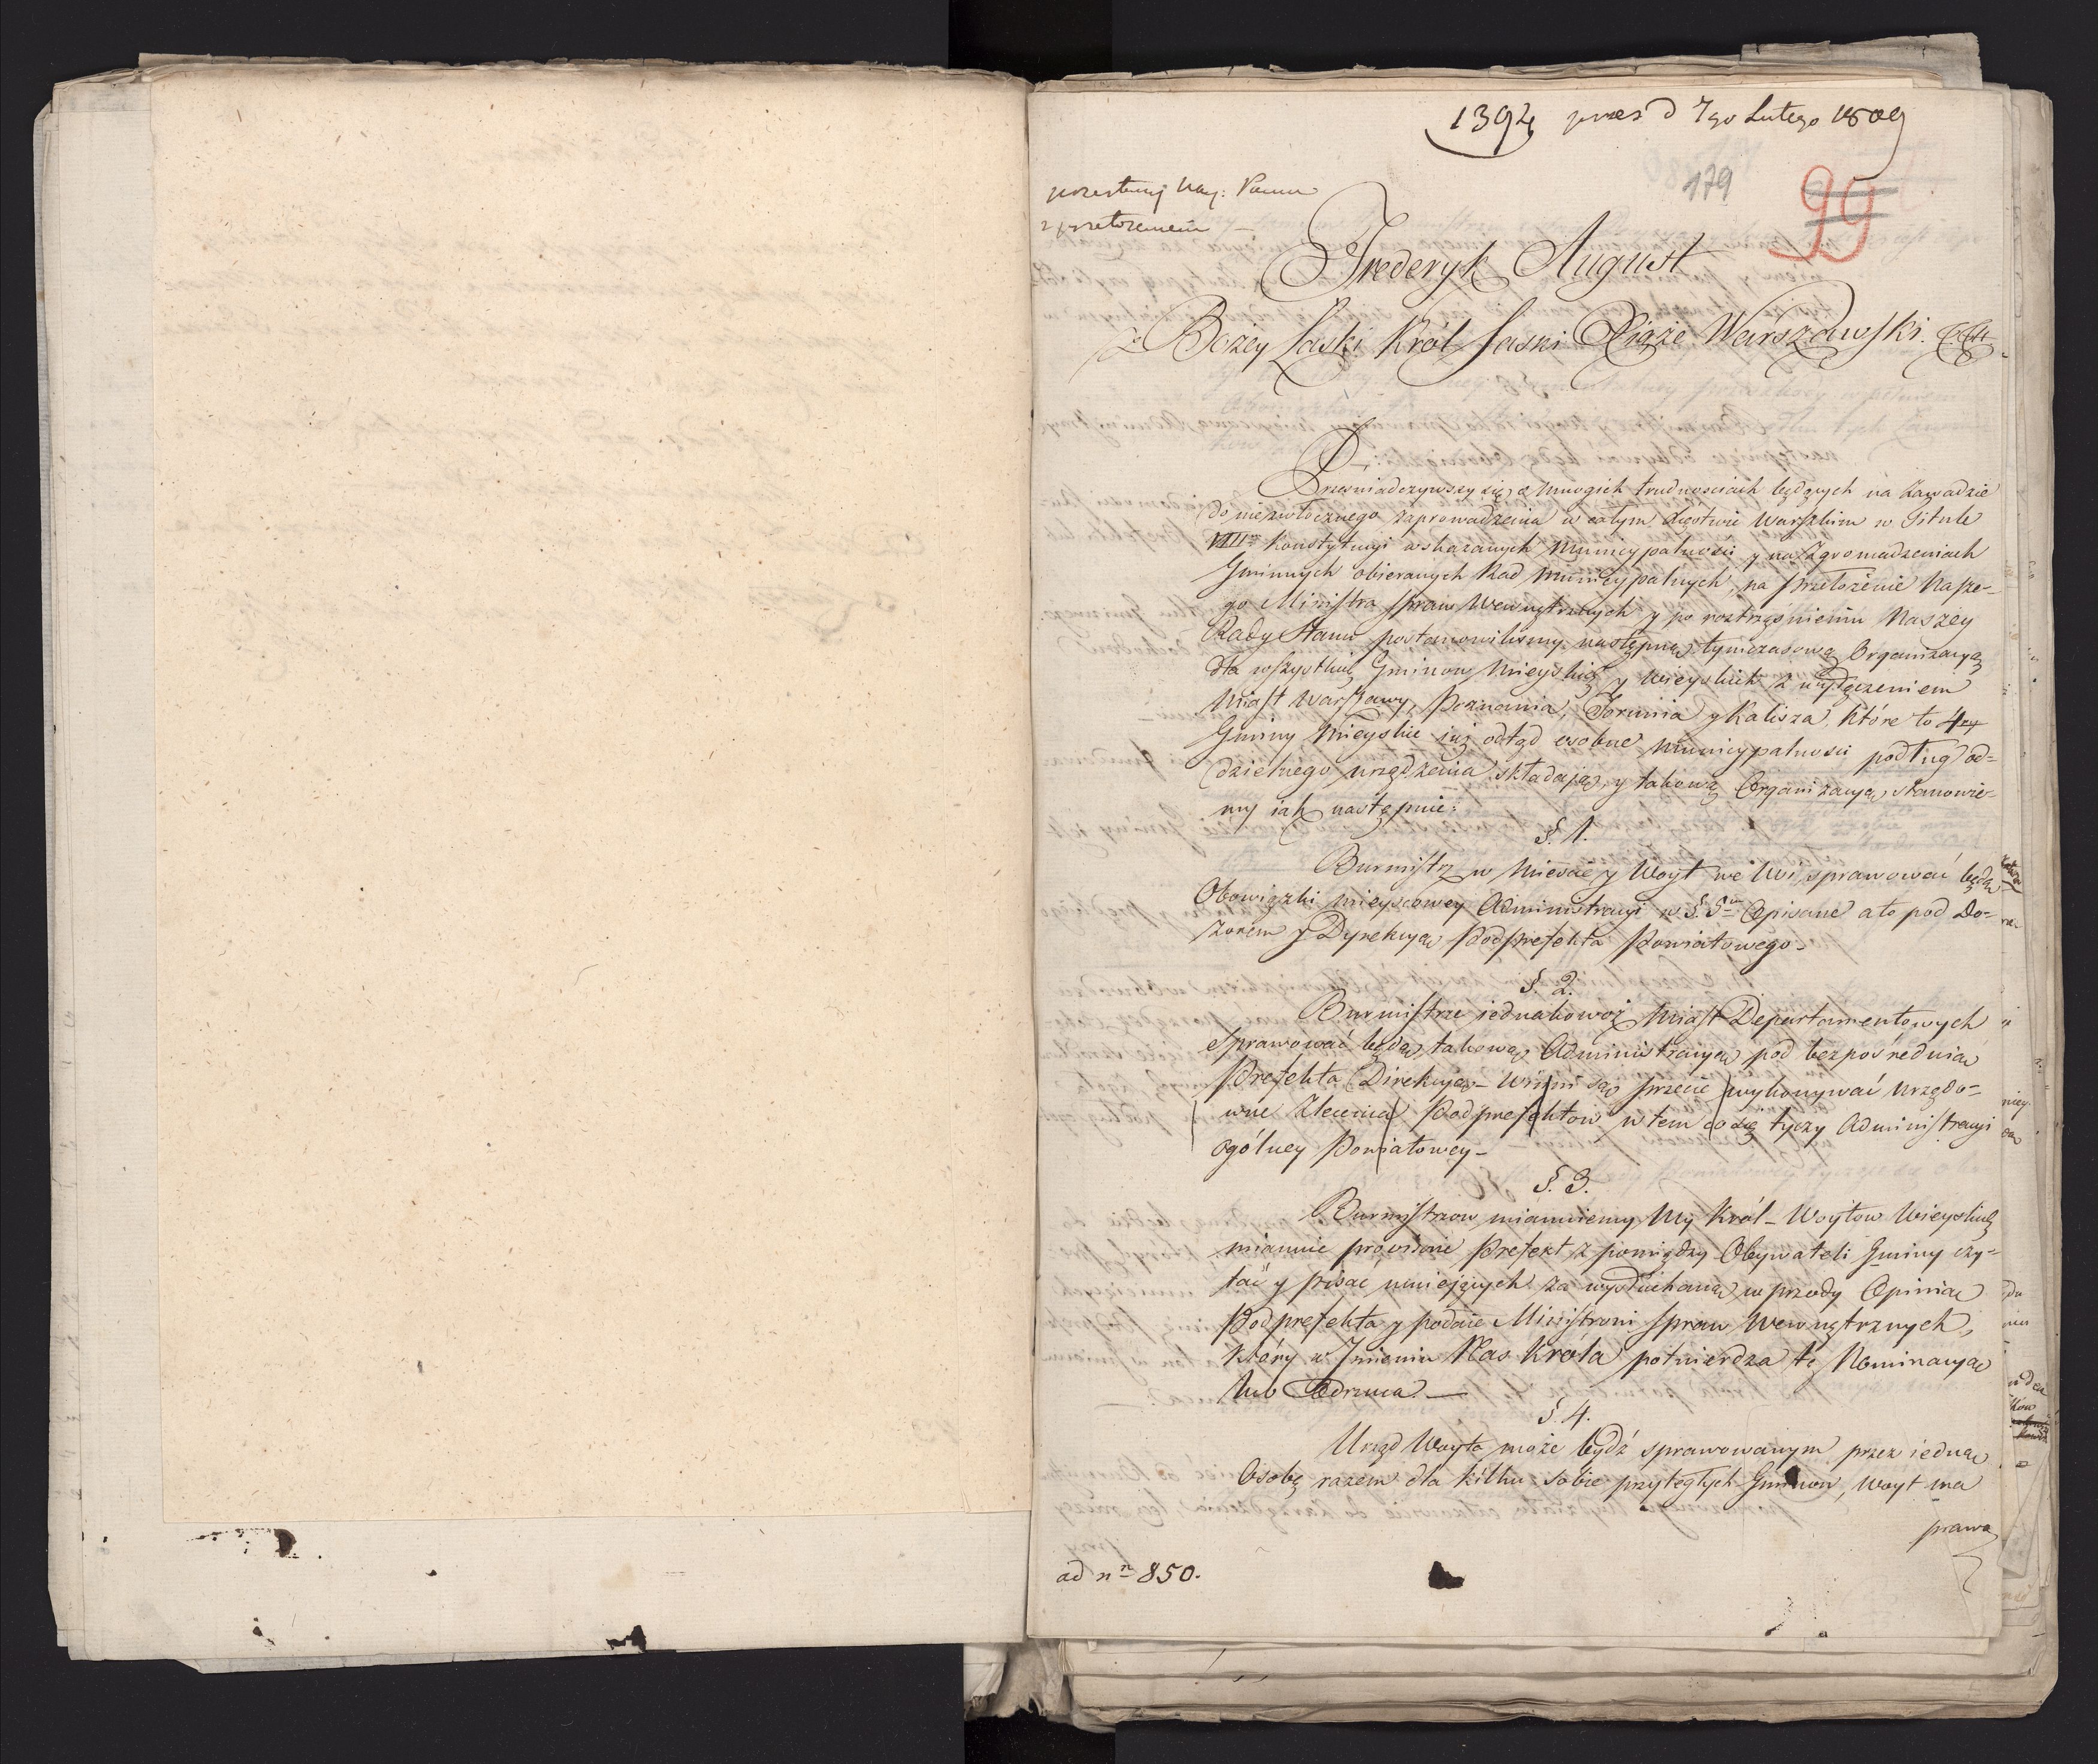 1394 praes d 7go Lutego 1809
179
99
Frederyk August
z Bożey Łaski Król Saski Xiąże Warszawski. &c &c
Przeświadczywszy się o mnogich trudnosciach będących na zawadzie
do niezwłocznego zaprowadzenia w całym Xięstwie Warszkim w Titule
VIIIm Konstytucyi wskazanych Municypalnosci y na Zgromadzeniach
Gminnych obieranych Rad Municypalnych, na przełożenie Nasze-
go Ministra spraw Wewnętrznych y po roztrząśnieniu Naszey
Rady Stanu postanowiliśmy następną tymczasową Organizacyą
dla wszystkich Gminow Mieyskich y wieyskich z wyłączeniem
Miast Warszawy, Poznania, Torunia y Kalisza, które to 4ry
Gminy Mieyskie iuż odtąd osobne Municypalnosci podług od=
dzielnego urządzenia składaią, y takową Organizacyą stanowie-
my iak następuie:
§. 1.
Burmistrz w Mieście y Woyt we Wsi, sprawować będą
Obowiązki mieyscowey Administracyi w §. 5m Opisane a to pod Do=
zorem y Dyrekcyą Podprefekta Powiatowego.
§. 2.
Burmistrze iednakowoż Miast Departamentowych
sprawować będą takową Administracyą pod bezpośrednią
Prefekta Direkcyą - Winni są przecie wykonywać Urzędo=
wne Zlecenia Podprefektow w tem co się tyczy Administracyi
ogólney Powiatowey -
§. 3.
Burmistrzow mianuiemy My Król - Woytow Wieyskich
mianuie Prefekt z pomiędzy Obywateli Gminy czy=
tać y pisać umieiących za wysłuchaną w przody Opinią
Podprefekta y podaie Ministrowi spraw Wewnętrznych,
który w Imieniu Nas Króla potwierdza tę Nominacyą
lub Odrzuca. —
§. 4.
Urząd Woyta może bydź sprawowanym przez iedną
Osobę razem dla kilku sobie przyległych Gminow, Woyt ma
prawo
ad nr 850.